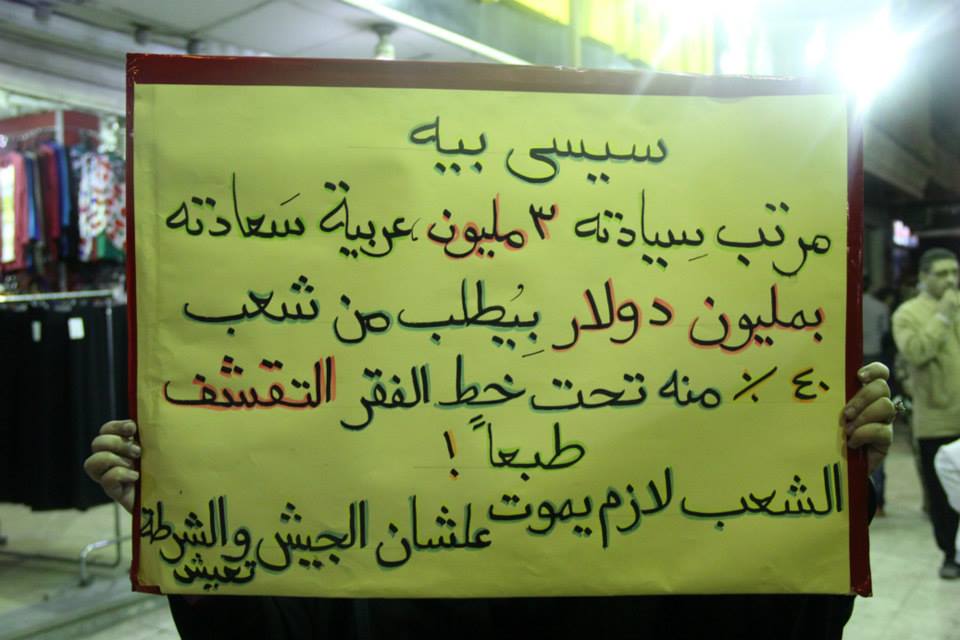 سيسى بيه
مرتب سِيادته ٣ مليون، عربية سَعادته
بمليون دولار بِيُطلب من شعب
٤٠٪ منه تحت خطٍ الفقر التقشف
طبعاً !
الشعب لازم يموت علشان الجيش والشرطة
تعيش